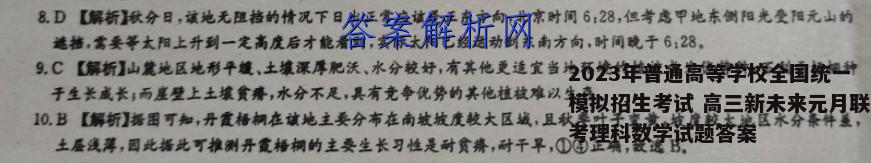 8. D 【解析】秋分日,该地无阻挡的情况下日 京时间 6:28,但考虑甲地东侧阳光受阳元山的
答案解析网
遮挡,需要等太阳上升到一定高度后才能看 南方向,时间晚于 6:28。
9. C 【解析】山麓地区地形平缓、土壤深厚肥沃、水分较好,有其他更适宜当
子生长成长;而崖壁上土壤贫瘠,水分不足,具有竞争优势的其他植被难以生
10. B 【解析】据图可知,丹霞梧桐在该地主要分布在南坡坡度较大区域,且秋季叶子变黄,坡度较大地区水分条件差,
土层浅薄,因此据此可推测丹霞梧桐的主要生长习性是耐贫瘠,耐干旱,①④正确,故选B。
2023年普通高等学校全国统一
模拟招生考试 高三新未来元月联
考理科数学试题答案